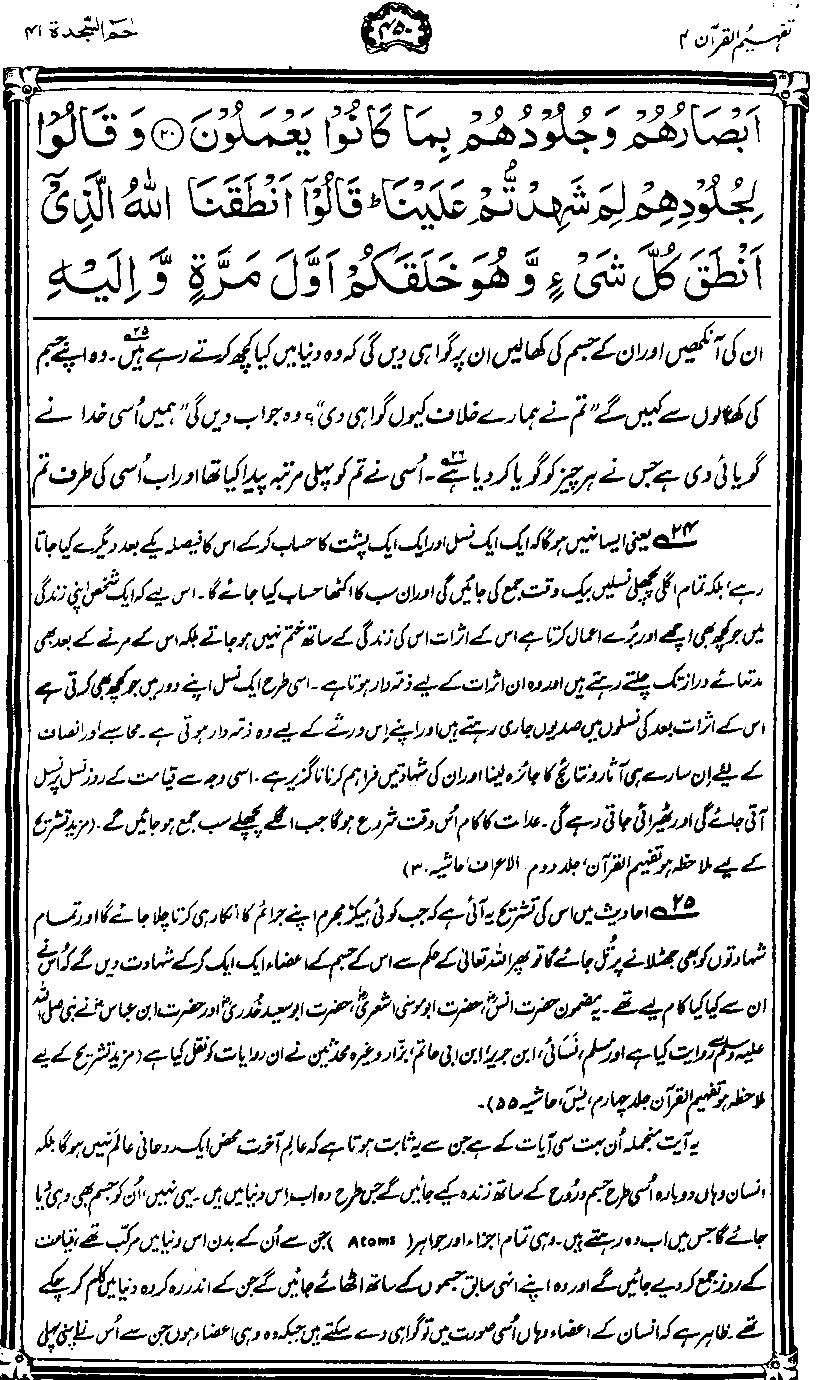 تفہیم القرآن ۴
۴۵۰
حٰمٓ السّجدۃ ۴۱
اَبْصَارُهُمْ وَجُلُوْدُهُمْ بِمَا كَانُوْا يَعْمَلُوْنَ ۝۲۰ وَ قَالُوْا
لِجُلُوْدِهِمْ لِمَ شَهِدْتُّمْ عَلَيْنَا ؕ قَالُوْٓا اَنْطَقَنَا اللّٰهُ الَّذِيْٓ
اَنْطَقَ كُلَّ شَيْءٍ وَّهُوَ خَلَقَكُمْ اَوَّلَ مَرَّةٍ وَّ اِلَيْهِ
ان کی آنکھیں اور ان کے جسم کی کھالیں ان پر گواہی دیں گی کہ وہ دنیا میں کیا کچھ کرتے رہے ہیں۲۵۔ وہ اپنے جسم
کی کھالوں سے کہیں گے "تم نے ہمارے خلاف کیوں گواہی دی"؟ وہ جواب دیں گی "ہمیں اُسی خدا نے
گویائی دی ہے جس نے ہر چیز کو گویا کر دیا ہے۲۶۔ اُسی نے تم کو پہلی مرتبہ پیدا کیا تھا اور اب اُسی کی طرف تم
۲۴ یعنی ایسا نہیں ہوگا کہ ایک ایک نسل اور ایک ایک پشت کا حساب کر کے اس کا فیصلہ یکے بعد دیگرے کیا جاتا
رہے، بلکہ تمام اگلی پچھلی نسلیں بیک وقت جمع کی جائیں گی اور ان سب کا اکٹھا حساب کیا جائے گا۔ اس لیے کہ ایک شخص اپنی زندگی
میں جو کچھ بھی اچھے اور بُرے اعمال کرتا ہے اس کے اثرات اس کی زندگی کے ساتھ ختم نہیں ہو جاتے بلکہ اس کے مرنے کے بعد بھی
مدتہائے دراز تک چلتے رہتے ہیں اور وہ ان اثرات کے لیے ذمہ دار ہوتا ہے۔ اسی طرح ایک نسل اپنے دور میں جو کچھ بھی کرتی ہے
اس کے اثرات بعد کی نسلوں میں صدیوں جاری رہتے ہیں اور اپنے اس ورثے کے لیے وہ ذمہ دار ہوتی ہے۔ محاسبے اور انصاف
کے لیے اِن سارے ہی آثار و نتائج کا جائزہ لینا اور ان کی شہادتیں فراہم کرنا ناگزیر ہے۔ اسی وجہ سے قیامت کے روز نسل پر نسل
آتی جائے گی اور ٹھیرائی جاتی رہے گی۔ عدالت کا کام اُس وقت شروع ہوگا جب اگلے پچھلے سب جمع ہو جائیں گے۔ (مزید تشریح
کے لیے ملاحظہ ہو تفہیم القرآن، جلد دوم، الاعراف، حاشیہ ۳۰)
۲۵ احادیث میں اس کی تشریح یہ آئی ہے کہ جب کوئی ہیکڑ مجرم اپنے جرائم کا انکار ہی کرتا چلا جائے گا اور تمام
شہادتوں کو بھی جھٹلانے پر تُل جائے گا تو پھر اللہ تعالیٰ کے حکم سے اس کے جسم کے اعضاء ایک ایک کر کے شہادت دیں گے کہ اُس نے
ان سے کیا کیا کام لیے تھے۔ یہ مضمون حضرت انسؓ، حضرت ابو موسیٰ اشعریؓ، حضرت ابو سعید خُدریؓ اور حضرت ابن عباسؓ نے نبی صلی اللہ
علیہ وسلم سے روایت کیا ہے اور مسلم، نَسائی، ابن جریر، ابن ابی حاتم، بزّار وغیرہ محدثین نے ان روایات کو نقل کیا ہے (مزید تشریح کے لیے
ملاحظہ ہو تفہیم القرآن جلد چہارم، یٰسٓ، حاشیہ ۵۵)۔
یہ آیت منجملہ اُن بہت سی آیات کے ہے جن سے یہ ثابت ہوتا ہے کہ عالمِ آخرت محض ایک روحانی عالم نہیں ہوگا بلکہ
انسان وہاں دوبارہ اُسی طرح جسم و رُوح کے ساتھ زندہ کیے جائیں گے جس طرح وہ اب اِس دنیا میں ہیں۔ یہی نہیں، اُن کو جسم بھی وہی دیا
جائے گا جس میں اب وہ رہتے ہیں۔ وہی تمام اجزاء اور جواہر (Atoms) جن سے اُن کے بدن اس دنیا میں مرکب تھے، قیامت
کے روز جمع کر دیے جائیں گے اور وہ اپنے انہی سابق جسموں کے ساتھ اٹھائے جائیں گے جن کے اندر رہ کر وہ دنیا میں کام کر چکے
تھے۔ ظاہر ہے کہ انسان کے اعضاء وہاں اُسی صورت میں تو گواہی دے سکتے ہیں جبکہ وہ وہی اعضاء ہوں جن سے اُس نے اپنی پہلی